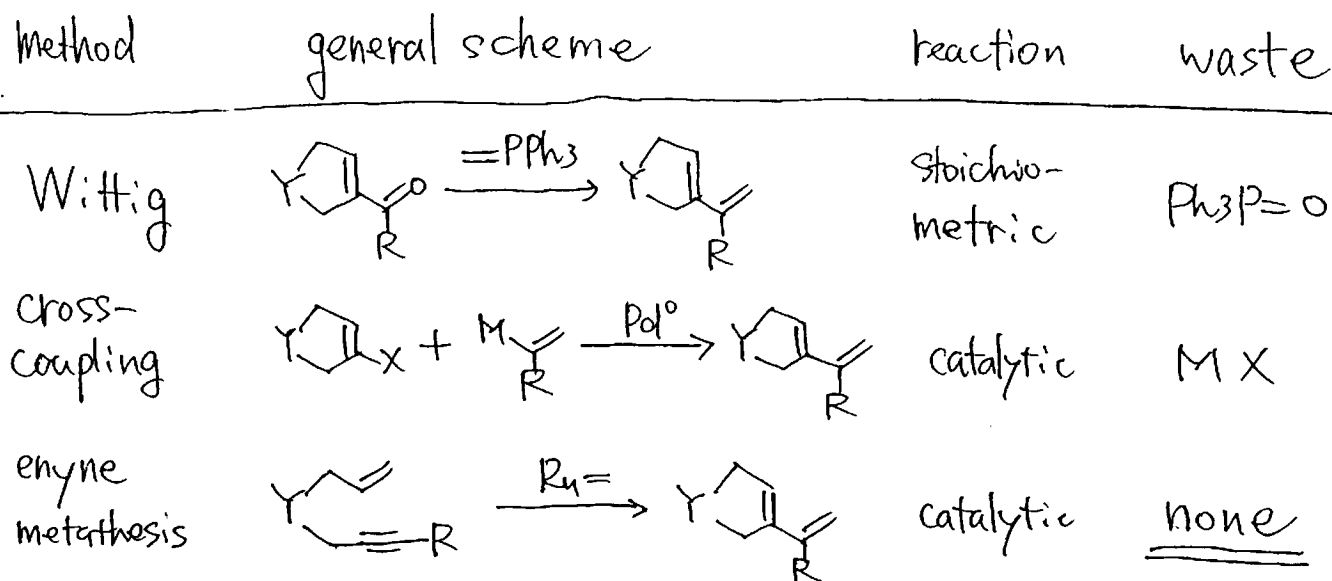 method general scheme reaction waste
Wittig Y O R =PPh3 Y R stoichio-metric Ph3P=O
cross-coupling Y X + M R Pd⁰ Y R catalytic MX
enyne metathesis Y R Ru= Y R catalytic none